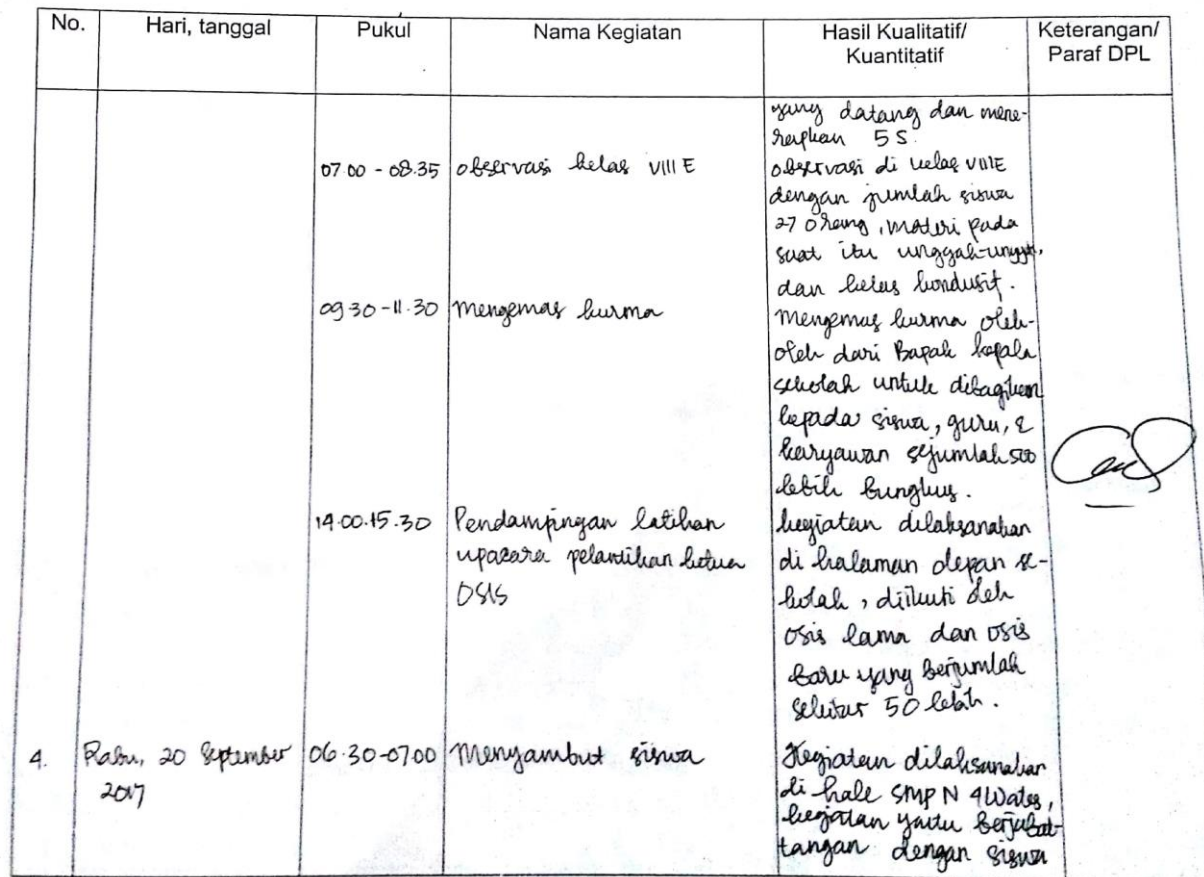 No. Hari, tanggal Pukul Nama Kegiatan Hasil Kualitatif/ Keterangan/
Kuantitatif Paraf DPL
yang datang dan mene-
rapkan 5 S.
07.00 - 08.35 observasi kelas VIII E observasi di kelas VIIIE
dengan jumlah siswa
27 orang, materi pada
saat itu unggah-ungguh,
dan kelas kondusif.
09.30-11.30 mengemas kurma mengemas kurma oleh-
oleh dari Bapak kepala
sekolah untuk dibagikan
kepada siswa, guru, &
karyawan sejumlah 500
lebih bungkus.
14.00.15.30 Pendampingan latihan kegiatan dilaksanakan
upacara pelantikan ketua di halaman depan se-
OSIS kolah, diikuti oleh
osis lama dan osis
baru yang berjumlah
sekitar 50 lebih.
4. Rabu, 20 September 06.30-07.00 Menyambut siswa Kegiatan dilaksanakan
2017 di hale SMP N 4 Wates,
kegiatan yaitu berjabat
tangan dengan siswa